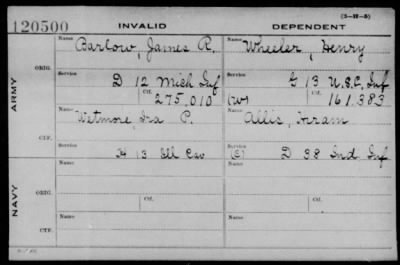 (3-17-5)
120500 INVALID DEPENDENT
ARMY
NAVY
ORIG.
Name Barlow, James R.
Name Wheeler, Henry
Service D 12 Mich Inf
Service G 13 U.S.C. Inf
Ctf. 275,010
(W) Ctf. 161,383
CTF.
Name Wetmore Ira P.
Name Allis, Hiram
Service H 13 Ill Cav
Service (C) D 38 Ind Inf
ORIG.
Name
Name
Service
Service
Ctf.
Ctf.
CTF.
Name
Name
Service
Service